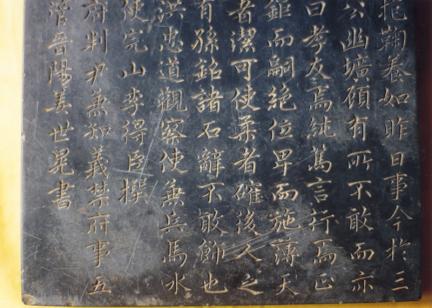 拖鞠養如昨日事今於三
公幽壙碩有所不敢而亦
曰孝友焉純篤言行焉正
鉅而嗣絶位卑而施薄天
者潔可使柔者確後人之
有孫銘諸石辭不敢飾也
洪忠道觀察使兼兵馬水
使完山李得臣撰
府判尹兼知義禁府事五
管晋陽姜世晃書